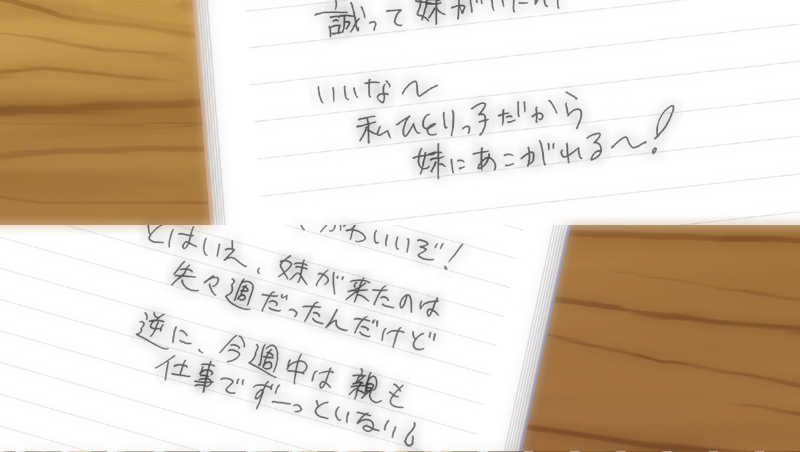 誠って妹がいたん
いいな～
私ひとりっ子だから
妹にあこがれる～!
かわいいぞ!
とはいえ、妹が来たのは
先々週だったんだけど
逆に、今週中は親も
仕事でずーっといない